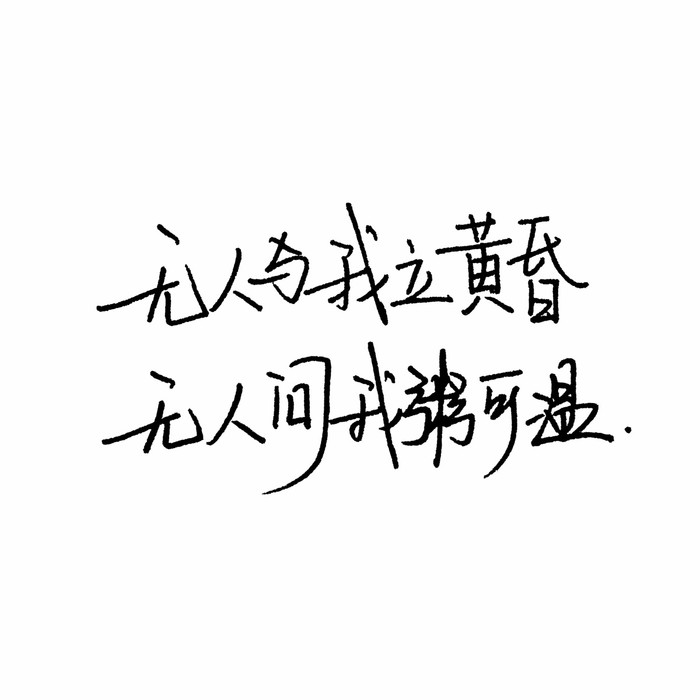 无人与我立黄昏
无人问我粥可温.